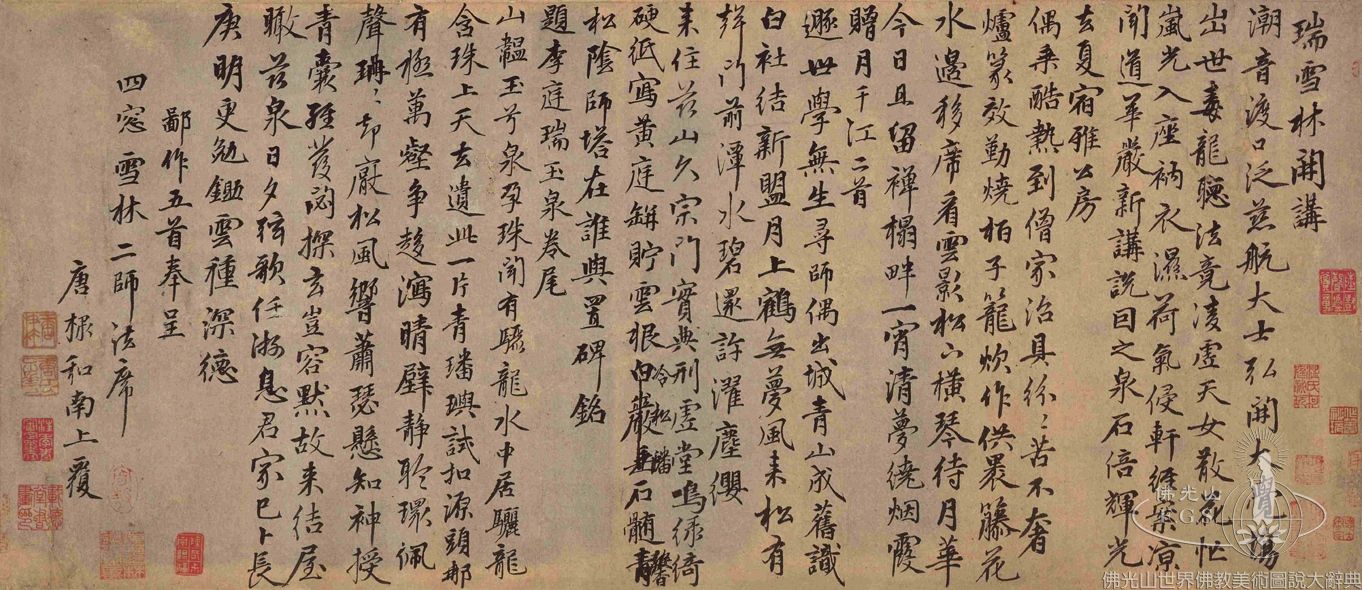 瑞雪林開講
潮音渡口泛慈航大士弘開大覺場
出世毒龍聽法竟凌虛天女散花忙
嵐光入座衲衣濕荷氣侵軒經案涼
聞道華嚴新講說因之泉石倍輝光
去夏宿雅公房
偶乘酷熱到僧家治具紛〻苦不奢
爐篆效勤燒柏子籠炊作供裹籐花
水邊移席看雲影松下橫琴待月華
今日且留禪榻畔一宵清夢繞烟霞
贈月千江二首
遯世學無生尋師偶出城青山成舊識
白社結新盟月上鶴無夢風來松有
聲門前潭水碧還許濯塵纓
來住茲山久宗門寶典刑虛堂鳴綠綺
硬紙寫黃庭缾貯雲根白巖垂石髓青
冷松蟠
松陰師塔在誰與置碑銘
題李庭瑞玉泉卷尾
山韞玉兮泉孕珠聞有驪龍水中居驪龍
含珠上天去遺此一片青璠璵試扣源頭那
有極萬壑爭趍瀉晴壁靜聆環佩
聲珊〻却厭松風響蕭瑟懸知神授
青囊經發閟探玄豈容默故來結屋
瞰茲泉日夕弦歌任游息君家已卜長
庚明更勉鋤雲種深德
鄙作五首奉呈
四窓雪林二師法席
唐棣和南上覆
佛光山
FGS
佛光山世界佛教美術圖說大辭典